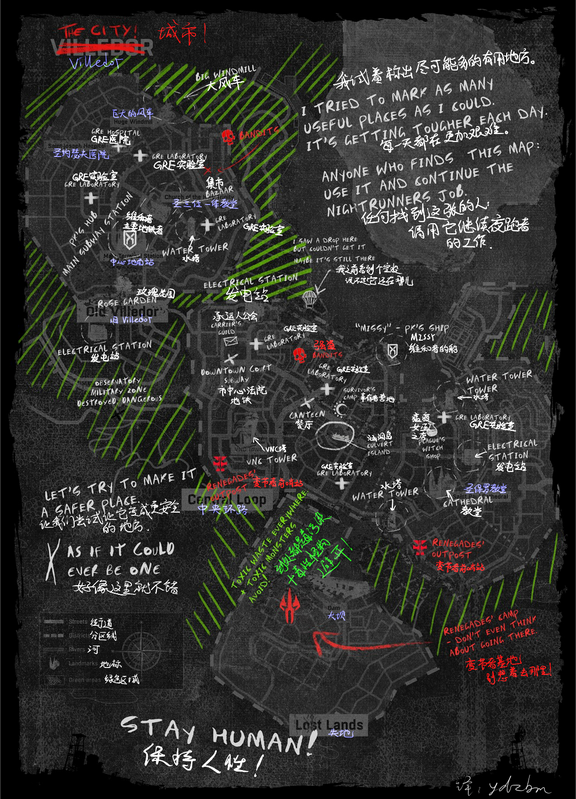 THE CITY! 城市!
VILLEDOR
Villedor
BIG WINDMILL
大风车
我试着标出尽可能多的有用地方。
I TRIED TO MARK AS MANY
USEFUL PLACES AS I COULD.
IT'S GETTING TOUGHER EACH DAY.
每一天都在更加艰难。
ANYONE WHO FINDS THIS MAP:
USE IT AND CONTINUE THE
NIGHTRUNNERS JOB.
任何找到这张的人:
请用它继续夜跑者
的工作.
巨大的风车
GRE HOSPITAL
GRE医院
BANDITS
GRE LABORATORY
GRE实验室
GRE实验室
GRE LABORATORY
集市
BAZAAR
PK'S HUB
MAIN SUBWAY STATION
GRE LABORATORY
GRE实验室
WATER TOWER
水塔
中心地铁站
I SAW A DROP HERE
BUT COULDN'T GET IT
MAYBE IT'S STILL THERE
ELECTRICAL STATION
发电站
玫瑰花园
ROSE GARDEN
Old Villedor
旧 Villedor
ELECTRICAL STATION
发电站
OBSERVATORY
MILITARY ZONE
DESTROYED, DANGEROUS
承运人公会
CARRIER'S
GUILD
GRE实验室
GRE LABORATORY
强盗
BANDITS
"MISSY" - PK'S SHIP
MISSY
维和者的船
DOWNTOWN COURT
SUBWAY
市中心法院
地铁
GRE LABORATORY
GRE实验室
SURVIVOR'S
CAMP
幸存者营地
CANTEEN
餐厅
CULVERT
ISLAND
WATER TOWER
TOWER
水塔
GRE LABORATORY
GRE实验室
PLAGUE'S
WITCH
SHOP
ELECTRICAL
STATION
发电站
VNC塔
VNC TOWER
GRE实验室
GRE LABORATORY
水塔
WATER TOWER
CATHEDRAL
教堂
RENEGADES'
OUTPOST
Central Loop
中央环路
LET'S TRY TO MAKE IT
A SAFER PLACE.
让我们尝试让它变成更安全
的地方.
AS IF IT COULD
EVER BE ONE
好像这里就不错
TOXIC WASTE EVERYWHERE
+ TOXIC MONSTERS
AVOID!
RENEGADES'
OUTPOST
变节者前哨站
Streets 街道
Districts 分区线
Rivers 河
Landmarks 地标
Green areas 绿色区域
Dam
大坝
RENEGADES' CAMP
- DON'T EVEN THINK
ABOUT GOING THERE.
变节者基地!
别想着去那里!
Lost Lands
失地
STAY HUMAN!
保持人性!
译: ydzbm